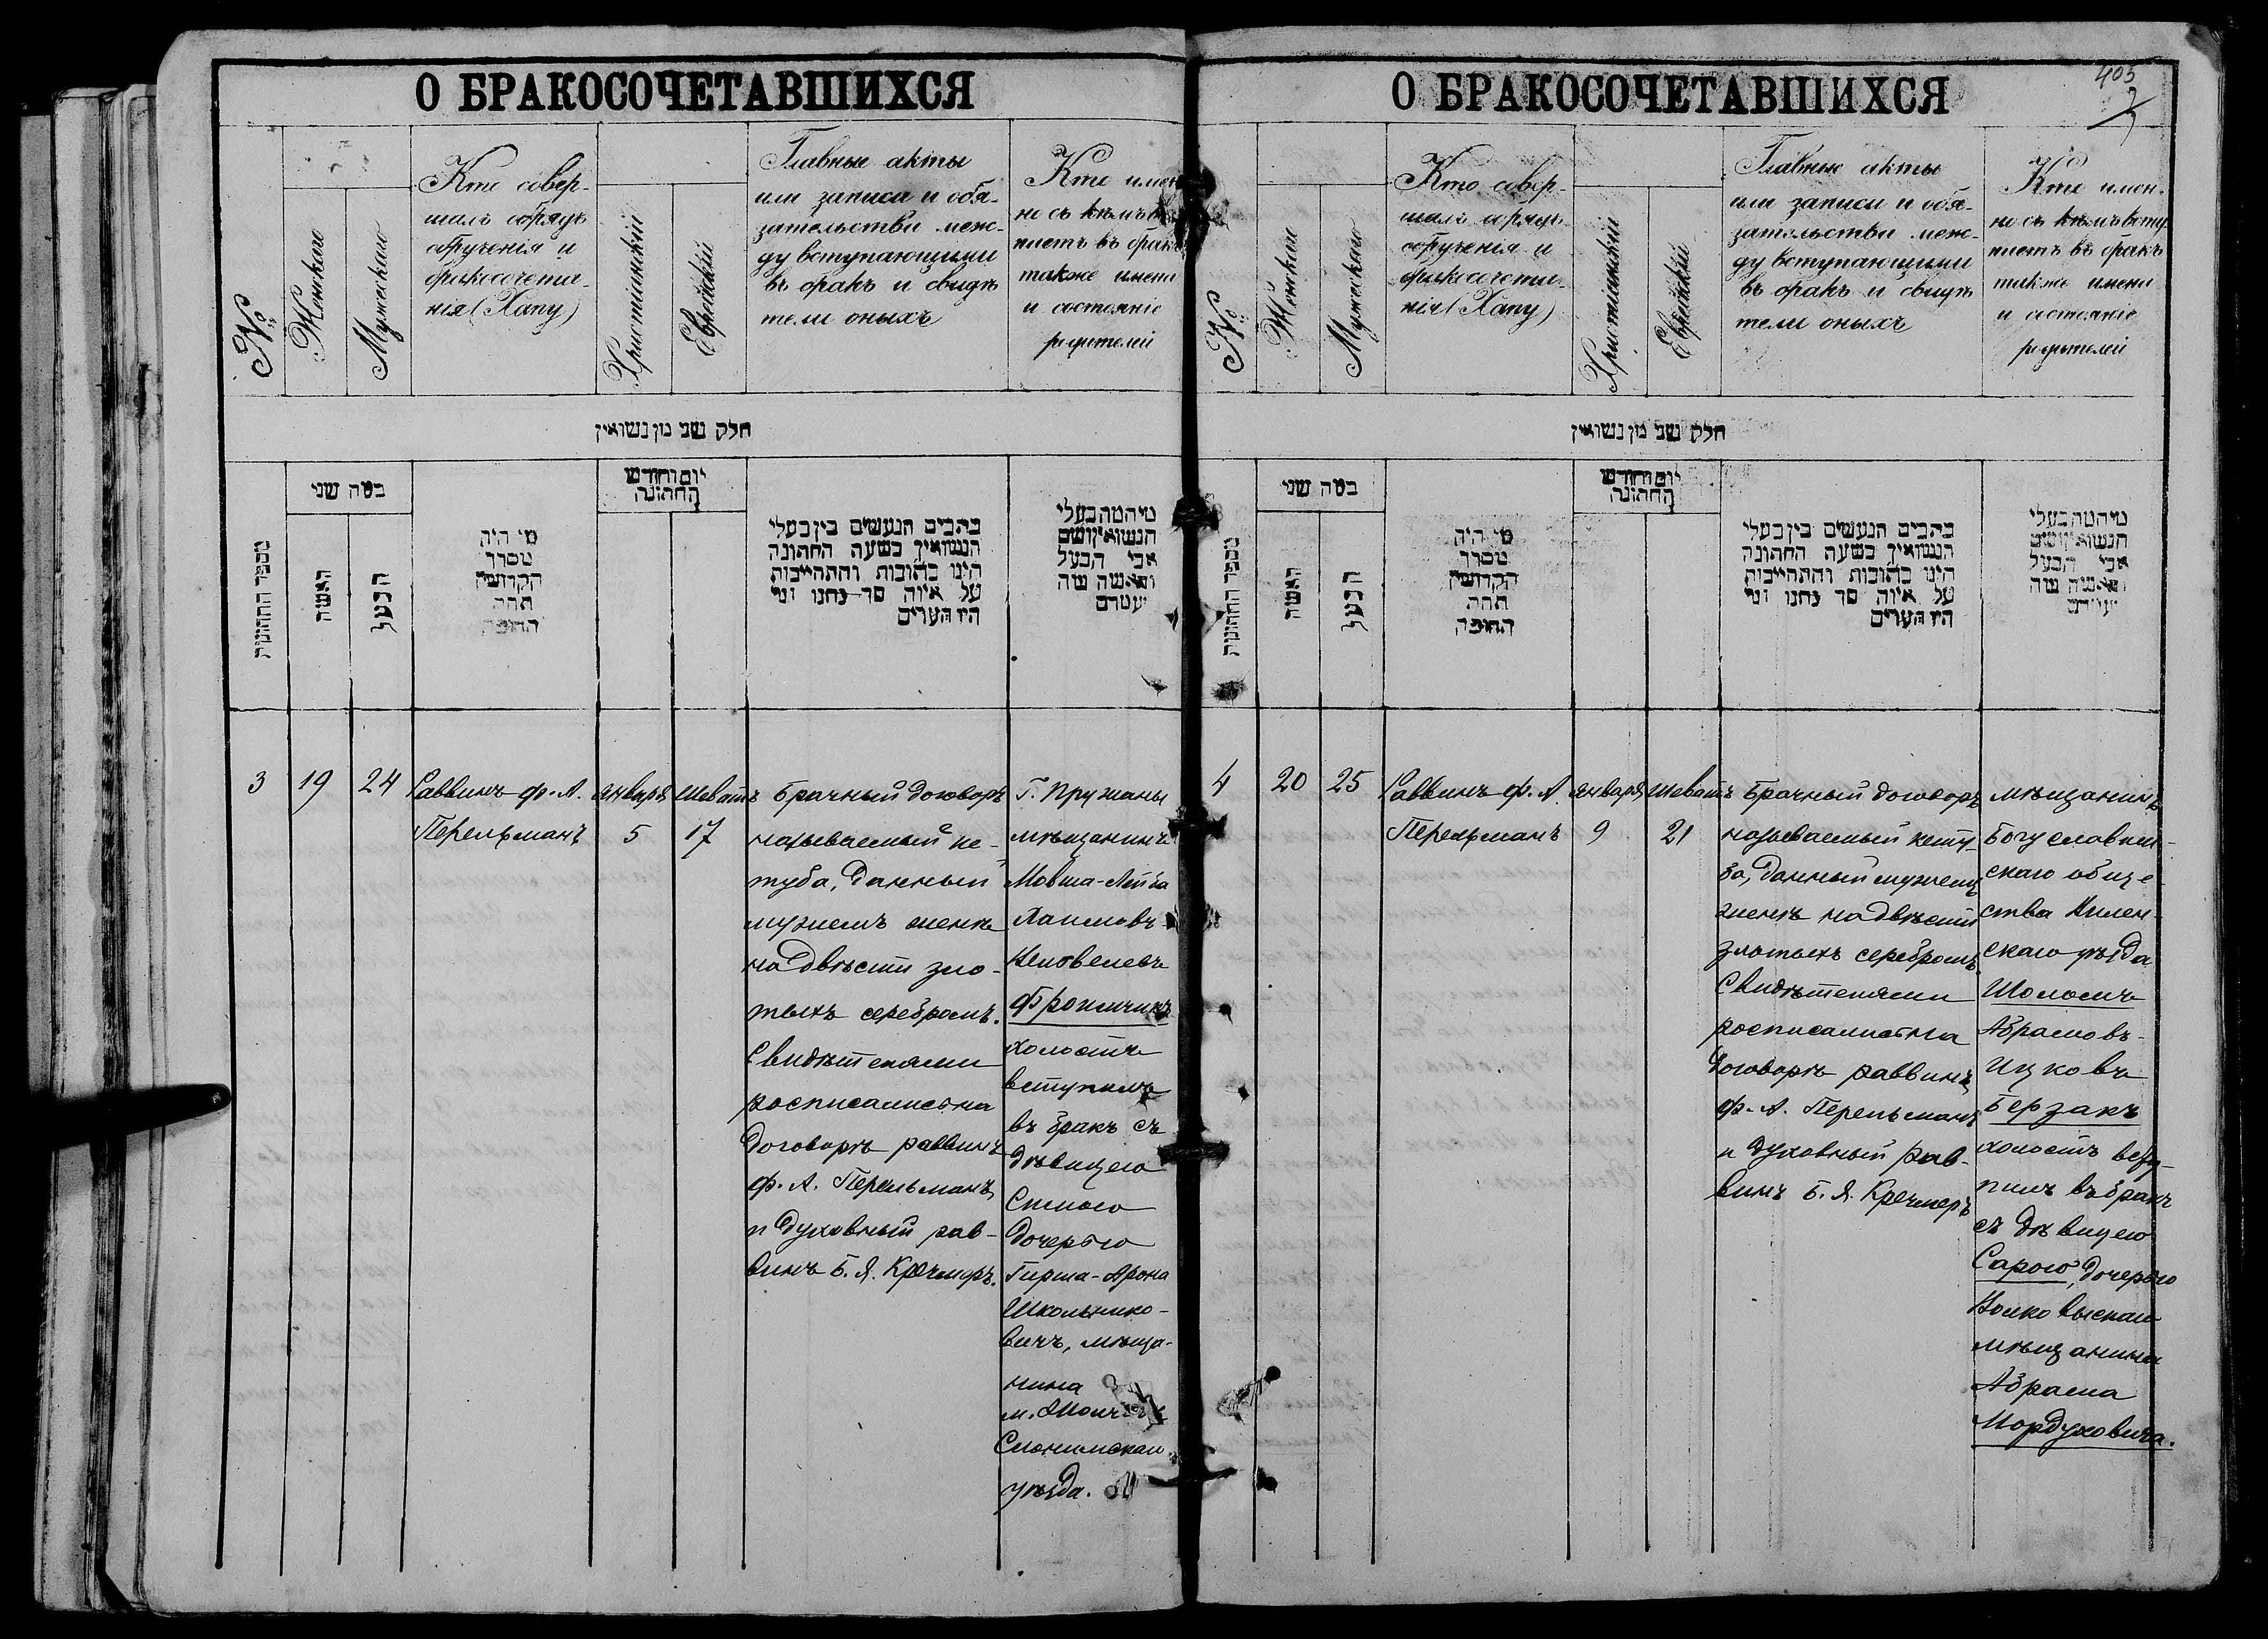 О БРАКОСОЧЕТАВШИХСЯ
№
Женскаго
Мужескаго
Кто совер-
шалъ обрядъ
обрученія и
бракосочета-
нія (Хапу)
Христіанскій
Еврейскій
Главные акты
или записи и обя-
зательства меж-
ду вступающими
въ бракъ и свидѣ
тели оныхъ
Кто имен
но съ кѣмъ в
паетъ въ бракъ
также имена
и состояніе
родителей
חלק שני מן נשואין
מספר החתונות
כמה שני
האשה
הבעל
מי היה
מסדר
הקדושין
תחת
החופה
יום וחודש
החתונה
כתבים הנעשים בין בעלי
הנשואין בשעת החתונה
היינו כתובות והתחייבות
על איזה סך נתנו ומי
היו העדים
מי המה בעלי
הנשואין ושם
אבי הבעל
והאשה מה
3
19
24
Раввинъ Ф. А.
Перельманъ
Января
5
Шеватъ
17
Брачный договоръ
называемый ке-
туба, данный
мужемъ женѣ
на двѣсти зло-
тыхъ серебромъ.
Свидѣтелями
росписались на
договорѣ раввинъ
Ф. А. Перельманъ
и духовный рав-
винъ Б. Я. Кречмеръ.
Г. Пружаны
мѣщанинъ
Мовша-Лейба
Хаимовъ-
холостъ
вступилъ
въ бракъ съ
дѣвицею
дочерью
Гирша-Арона
Школьнико-
вичъ, мѣща-
нина
Слонимскаго
уѣзда.
О БРАКОСОЧЕТАВШИХСЯ
405
№
Женскаго
Мужескаго
Кто совер-
шалъ обрядъ
обрученія и
бракосочета-
нія (Хапу)
Христіанскій
Еврейскій
Главные акты
или записи и обя-
зательства меж-
ду вступающими
въ бракъ и свидѣ
тели оныхъ
Кто имен-
но съ кѣмъ всту
паетъ въ бракъ
также имена
и состояніе
родителей
חלק שני מן נשואין
מספר החתונות
כמה שני
האשה
הבעל
מי היה
מסדר
הקדושין
תחת
החופה
יום וחודש
החתונה
כתבים הנעשים בין בעלי
הנשואין בשעת החתונה
היינו כתובות והתחייבות
על איזה סך נתנו ומי
היו העדים
מי המה בעלי
הנשואין ושם
אבי הבעל
והאשה מה
4
20
25
Раввинъ Ф. А.
Перельманъ
Января
9
Шеватъ
21
Брачный договоръ
называемый кету-
ба, данный мужемъ
женѣ на двѣсти
злотыхъ серебромъ.
Свидѣтелями
росписались на
договорѣ раввинъ
Ф. А. Перельманъ
и духовный рав-
винъ Б. Я. Кречмеръ
мѣщанинъ
Богуславиш-
скаго обще-
ства Вилен-
скаго уѣзда
Шоломъ
Абрамовъ-
Ицковъ
Берзакъ
холостъ всту-
пилъ въ бракъ
съ дѣвицею
Сарою, дочерью
Волковыскаго
мѣщанина
Абрама
Мордуховича.